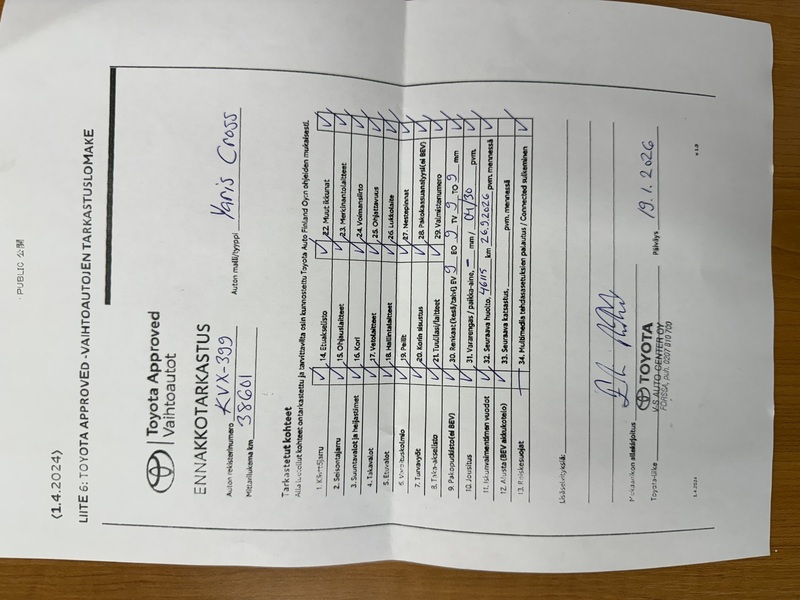 PUBLIC 公開
(1.4.2024)
LIITE 6: TOYOTA APPROVED -VAIHTOAUTOJEN TARKASTUSLOMAKE
Toyota Approved
Vaihtoautot
ENNAKKOTARKASTUS
Auton rekisterinumero KVX-399 Auton malli/tyyppi Yaris Cross
Mittarilukema km 38601
Tarkastetut kohteet
Alla luetellut kohteet on tarkastettu ja tarvittavilta osin kunnostettu Toyota Auto Finland Oy:n ohjeiden mukaisesti.
1. Käyttöjarru ✓ 14. Etuakselisto ✓ 22. Muut ikkunat ✓
2. Seisontajarru ✓ 15. Ohjauslaitteet ✓ 23. Merkinantolaitteet ✓
3. Suuntavalot ja heijastimet ✓ 16. Kori ✓ 24. Voimansiirto ✓
4. Takavalot ✓ 17. Vetolaitteet ✓ 25. Ohjattavuus ✓
5. Etuvalot ✓ 18. Hallintalaitteet ✓ 26. Lukkolaite ✓
6. Varoituskolmio ✓ 19. Peilit ✓ 27. Nestepinnat ✓
7. Turvavyöt ✓ 20. Korin sisustus ✓ 28. Pakokaasuanalyysi(ei BEV) ✓
8. Taka-akselisto ✓ 21. Tuulilasi/laitteet ✓ 29. Valmistenumero ✓
9. Pakoputkisto(ei BEV) ✓ 30. Renkaat (kesä/talvi) EV 9 EO 9 TV 9 TO 9 mm ✓
10. Jousitus ✓ 31. Vararengas / paikka-aine, – mm / 04/30 pvm. ✓
11. Iskunvaimentimen vuodot ✓ 32. Seuraava huolto, 46115 km 26.9.2026 pvm. mennessä ✓
12. Alusta (BEV akkukotelo) ✓ 33. Seuraava katsastus, pvm. mennessä
13. Roiskesuojat 34. Multimedia tehdasasetuksien palautus / Connected sulkeminen ✓
Lisäselvityksiä:
Mekaanikon allekirjoitus
TOYOTA
V.S. AUTO-CENTER OY
FORSSA, puh. 0207 810 700
Toyota-liike Päiväys 19.1.2026
1.4.2024 v 1.0